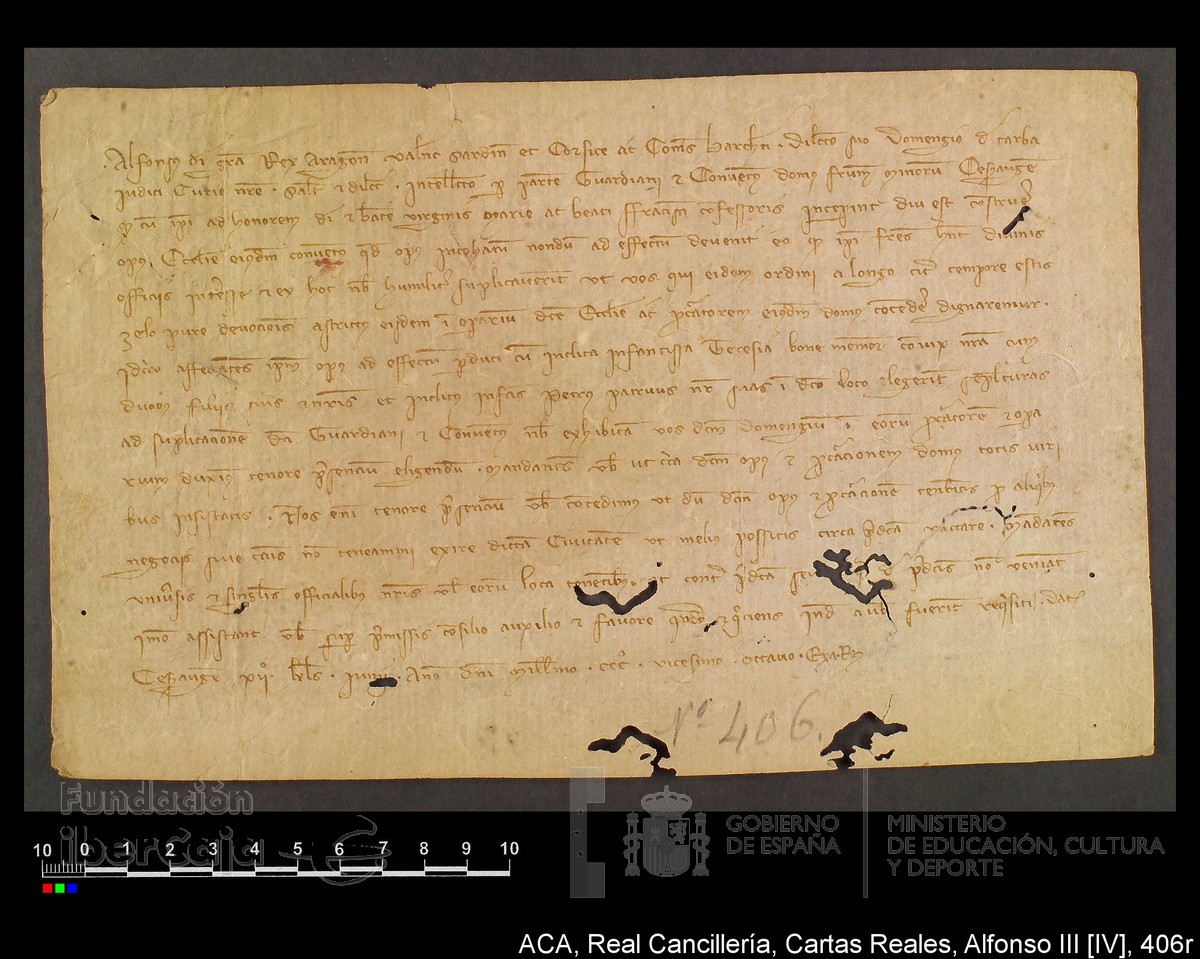 Alfonsus di gra Rex Aragon Valent Sardin et Corsice ac Comes Barchn. Dilecto suo Domengio d Tarba
Iudici Curie nre. Salt et dilect. Intellecto p parte Guardiani et Conventus domus frum minorum Cesarauguste
q cum ipi ad honorem di et bate virginis Marie ac beati ffrancisci cofessoris inceperint diu est costruere
opus Ecclie eiusdm conventus qd opus incohatum nondum ad effectum devenit eo q ipi fres hnt divinis
officiis interesse et ex hoc nob humilit suplicaverint ut vos qui eidem ordini a longo cit tempore estis
zelo pure devocionis astrictus eisdem in operarium dce Ecclie ac pcuratorem eiusdm domus cocedere dignaremur.
Idcirco affectates ipm opus ad effectum pduci cum inclita Infantissa Teresia bone memor coniux nra cum
duobus filiis suis et nris et inclitus Infans Petrus patruus nr suas in dco loco elegerint sepulturas
ad suplicacionem dci Guardiani et Conventus nob exhibitam vos dcm Domengium in eorum pcuratorem et opa
rium duximus tenore psencium eligendum. Mandantes vob ut circa dcm opus et pcuracionem domus totis viri
bus insistatis. Nos eni tenore psencium vob cocedimus ut dum dcm opus et pcuracionem tenebitis p aliquibus
negociis sive causis no teneamini exire dictam Civitatem ut melius possitis circa pdca vaccare. Mandates
universis et singulis officialibus nris vel eorum loca tenentibus ut contra pdca pdcis no veniant
imo assistant vob sup pmissis cosilio auxilio et favore quado et quociens inde fuerint requisiti. Dat
Cesarauguste XII kls Iunii. Anno dni Millmo. CCC. vicesimo. octavo. Exa. R
Nº 406.
Fundación
ibercaja
GOBIERNO
DE ESPAÑA
MINISTERIO
DE EDUCACIÓN, CULTURA
Y DEPORTE
10 0 1 2 3 4 5 6 7 8 9 10
ACA, Real Cancillería, Cartas Reales, Alfonso III [IV], 406r